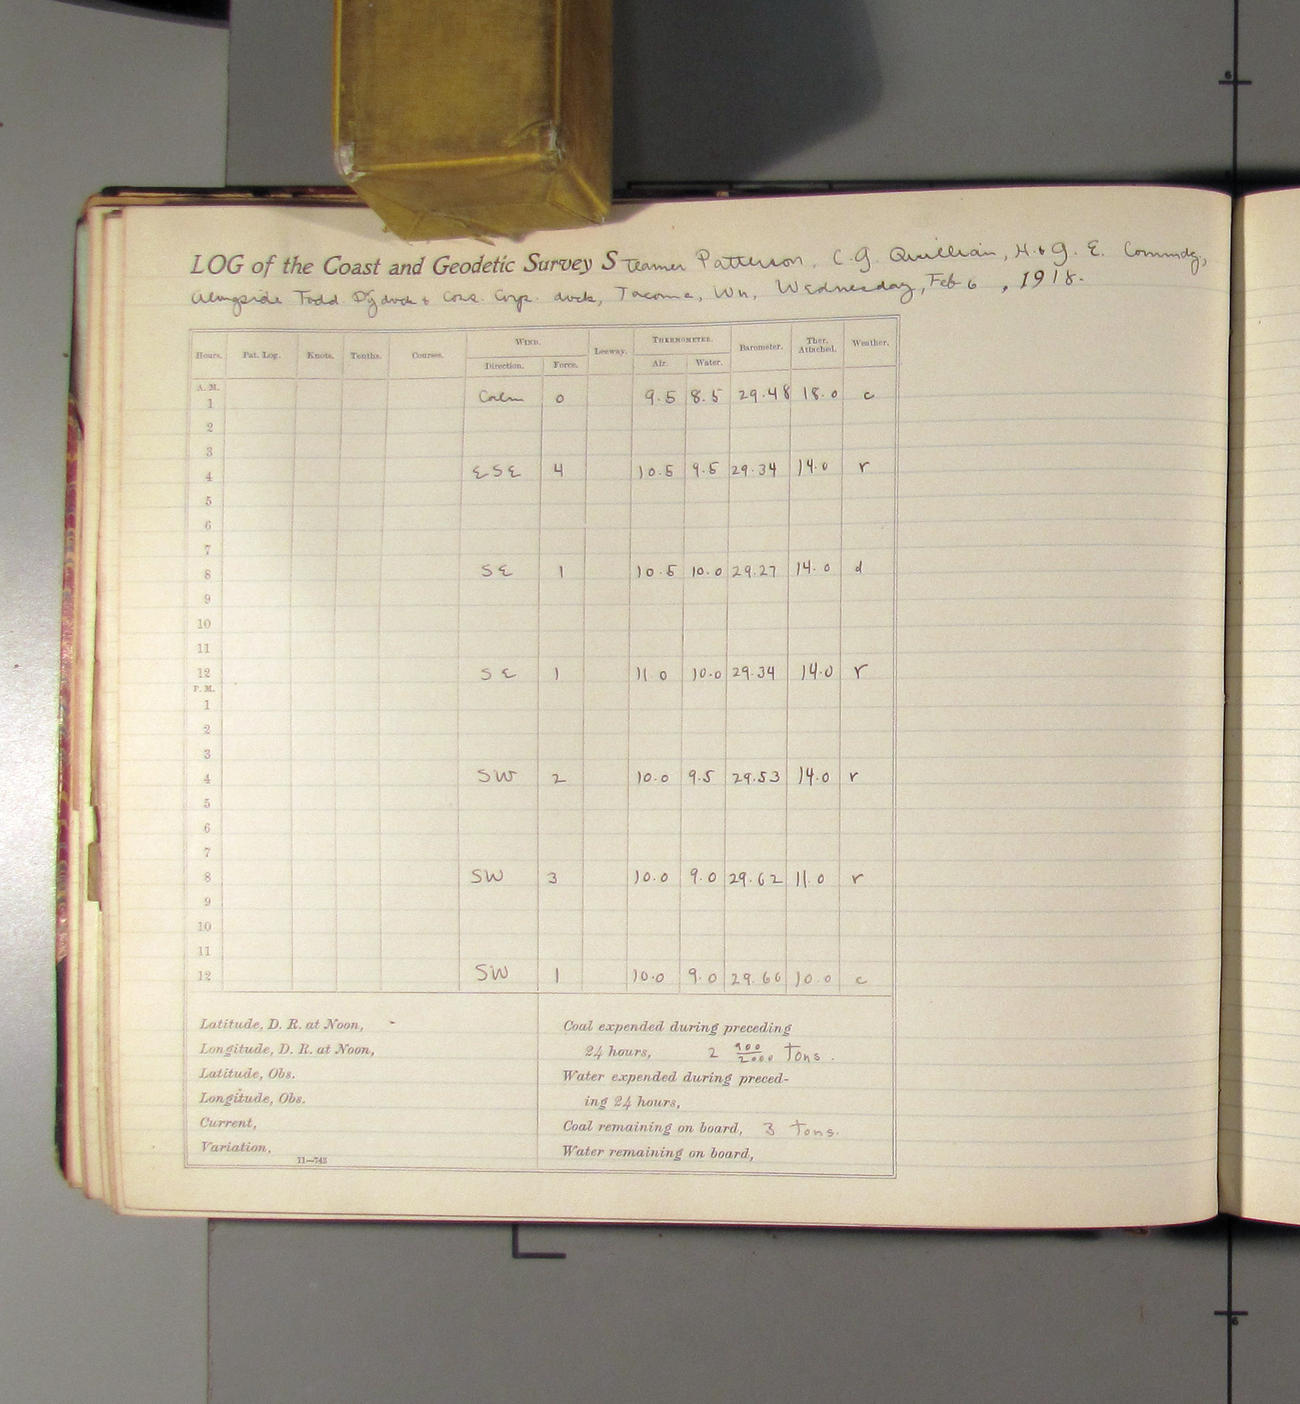 LOG of the Coast and Geodetic Survey Steamer Patterson, C.G. Quillian, H. & G. E. Commdg,
Alongside Todd Dry dock & Cons. Corp. dock, Tacoma, Wn, Wednesday, Feb 6, 1918.
Hours. Pat. Log. Knots. Tenths. Courses. WIND. Leeway. THERMOMETER. Barometer. Ther. Attached. Weather.
Direction. Force. Air. Water.
A. M.
1 Calm 0 9.5 8.5 29.48 18.0 c
2
3
4 ESE 4 10.5 9.5 29.34 14.0 r
5
6
7
8 SE 1 10.5 10.0 29.27 14.0 d
9
10
11
12 SE 1 11 0 10.0 29.34 14.0 r
P. M.
1
2
3
4 SW 2 10.0 9.5 29.53 14.0 r
5
6
7
8 SW 3 10.0 9.0 29.62 11.0 r
9
10
11
12 SW 1 10.0 9.0 29.60 10.0 c
Latitude, D. R. at Noon, -
Longitude, D. R. at Noon,
Latitude, Obs.
Longitude, Obs.
Current,
Variation,
11—743
Coal expended during preceding
24 hours, 2 900/2000 Tons.
Water expended during preced-
ing 24 hours,
Coal remaining on board, 3 Tons.
Water remaining on board,
6
6